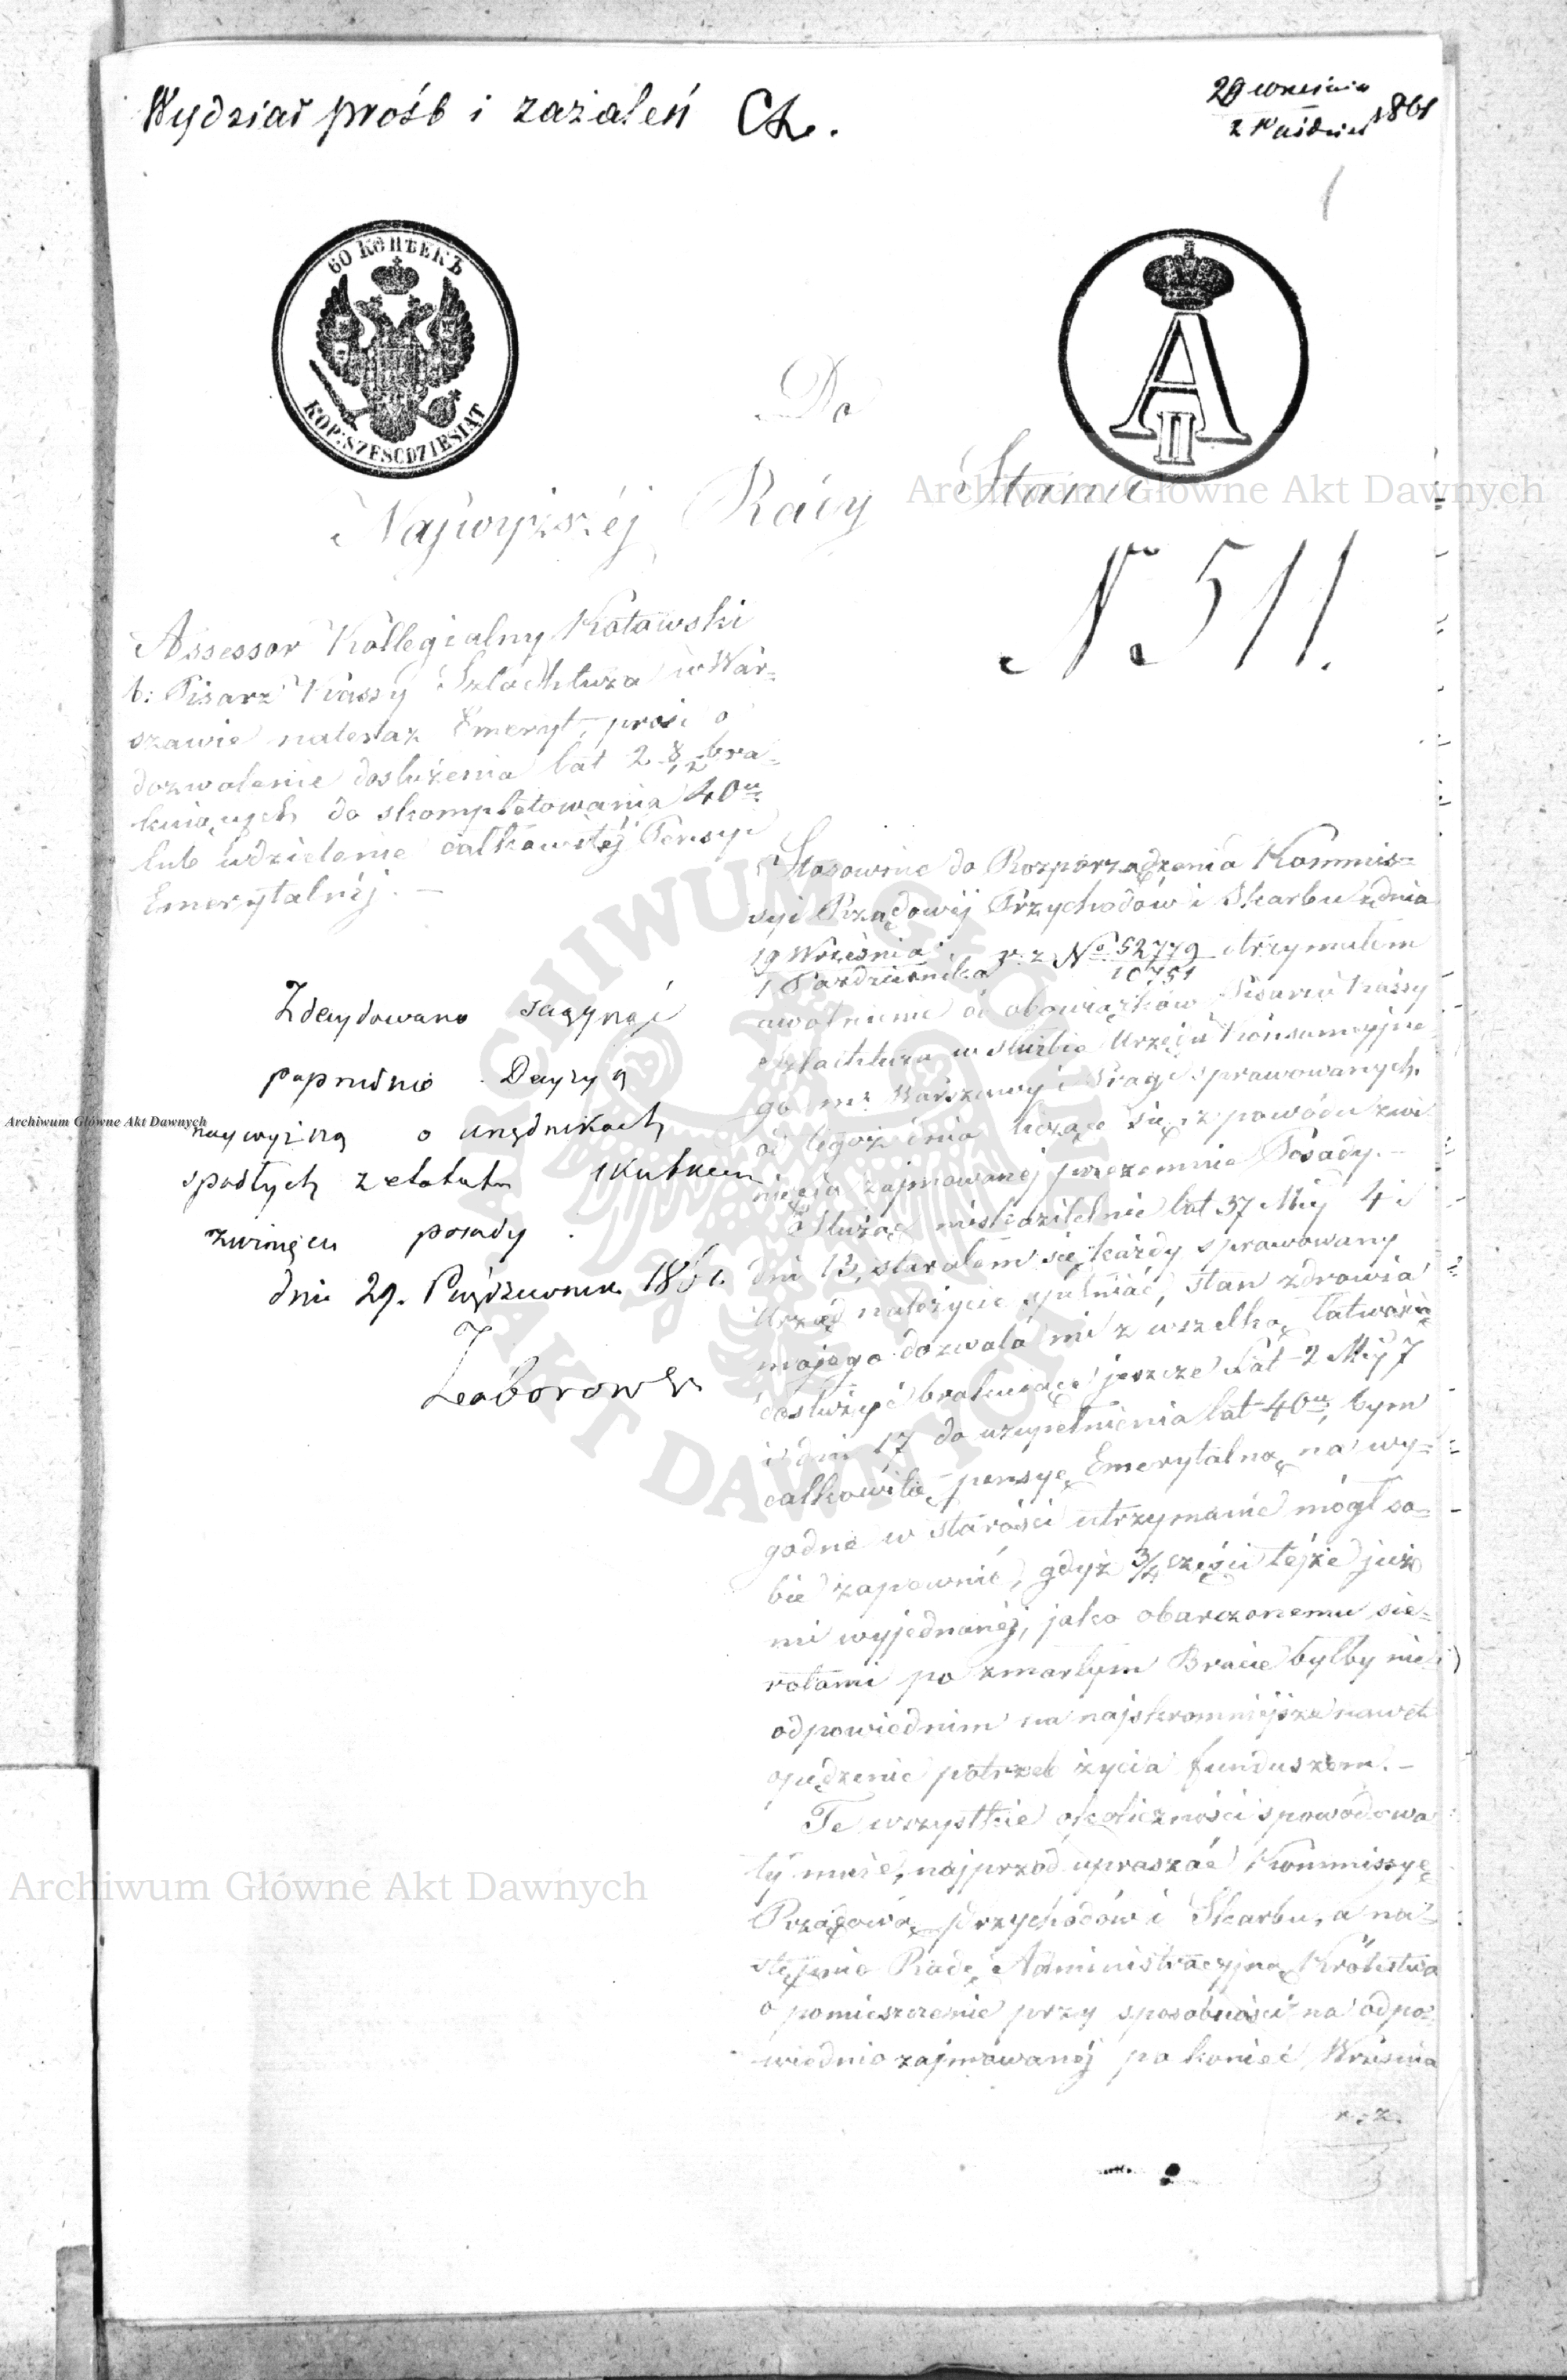 Wydział próśb i zażaleń Ch.
29 Września
2 Paźdz: 1861
1
60 КОПѢЕКЪ
KOP: SZEŚĆDZIESIĄT
A II
Do
Najwyższéj Rady Stanu
N 511.
Assessor Kollegialny
b: Pisarz Kassy Szlachtuza w War-
szawie nateraz Emeryt, prosi o
dozwolenie dosłużenia lat 2 8/12 bra-
kujących do skompletowania 40u
lub udzielenie całkowitéj Pensyi
Emerytalnéj. —
Zdecydowano
poprzednio Decyzyą
najwyższą o urzędnikach
spadłych z etatu skutkiem
zwinięcia posady.
dnia 29. Października 1861.
Zaborowski
Stosownie do Rozporządzenia Kommis-
syi Rządowéj Przychodów i Skarbu z dnia
19 Września
1 Października r. z. No 52779/10751 otrzymałem
uwolnienie od obowiązków Pisarza Kassy
Szlachtuza w służbie Urzędu Konsumcyjne-
go m: Warszawy i Pragi sprawowanych,
od tegoż dnia licząc się, z powodu zwi-
nięcia zajmowanéj przezemnie Posady. —
Służąc nieskazitelnie lat 37 Mcy 4 i
dni 13, starałem się każdy sprawowany
Urząd należycie spełniać, stan zdrowia
mojego dozwala mi z wszelką łatwością
dosłużyć brakujące jeszcze Lat 2 Mcy 7
i dni 17 do uzupełnienia lat 40u, bym
całkowitą pensyę Emerytalną na wy-
godne w starości utrzymanie mógł so-
bie zapewnić, gdyż 3/4 części tejże już
mi wyjednanéj, jako obarczonemu sie-
rotami po zmarłym Bracie byłby nie-
odpowiednim na najskromniejsze nawet
opędzenie potrzeb życia funduszem. —
Te wszystkie okoliczności spowodowa-
ły mnie, najprzód upraszać Kommissyę
Rządową Przychodów i Skarbu, a na-
stępnie Radę Administracyjną Królestwa
o pomieszczenie przy sposobności na odpo-
wiednio zajmowanéj po koniec Września
r. z.
Archiwum Główne Akt Dawnych
Archiwum Główne Akt Dawnych
Archiwum Główne Akt Dawnych
ARCHIWUM GŁÓWNE AKT DAWNYCH